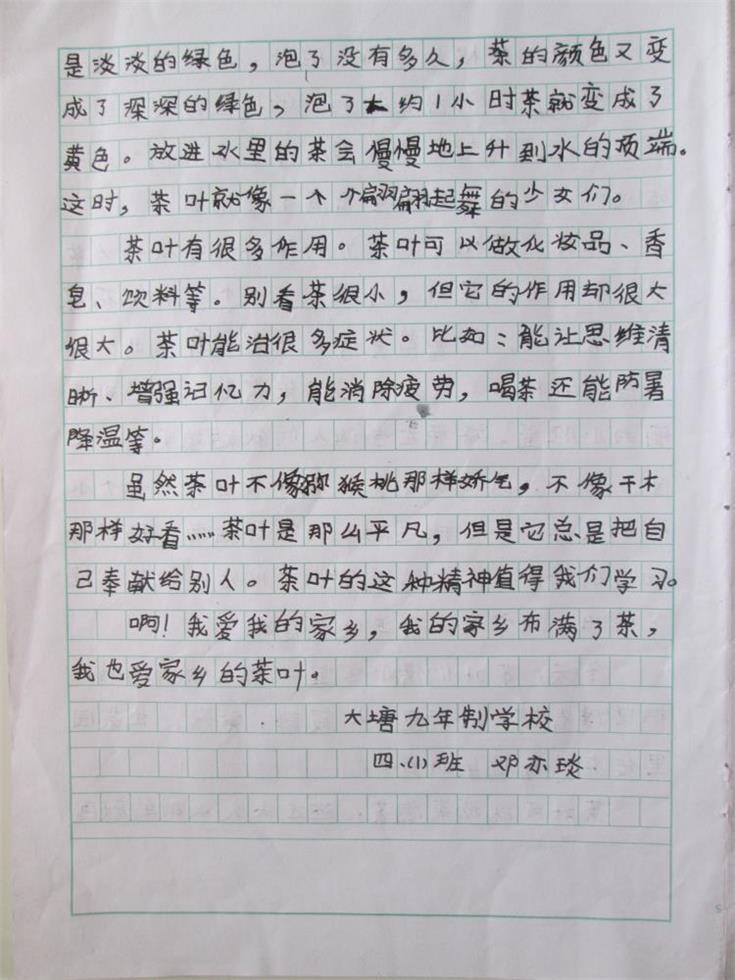 是淡淡的绿色，泡了没有多久，茶的颜色又变
成了深深的绿色，泡了大约1小时茶就变成了
黄色。放进水里的茶会慢慢地上升到水的顶端。
这时，茶叶就像一个个翩翩起舞的少女们。
茶叶有很多作用。茶叶可以做化妆品、香
皂、饮料等。别看茶很小，但它的作用却很大
很大。茶叶能治很多症状。比如：能让思维清
晰、增强记忆力，能消除疲劳，喝茶还能防暑
降温等。
虽然茶叶不像猕猴桃那样娇气，不像干木
那样好看……茶叶是那么平凡，但是它总是把自
己奉献给别人。茶叶的这种精神值得我们学习。
啊！我爱我的家乡，我的家乡布满了茶，
我也爱家乡的茶叶。
大塘九年制学校
四.(1)班 邓亦琰